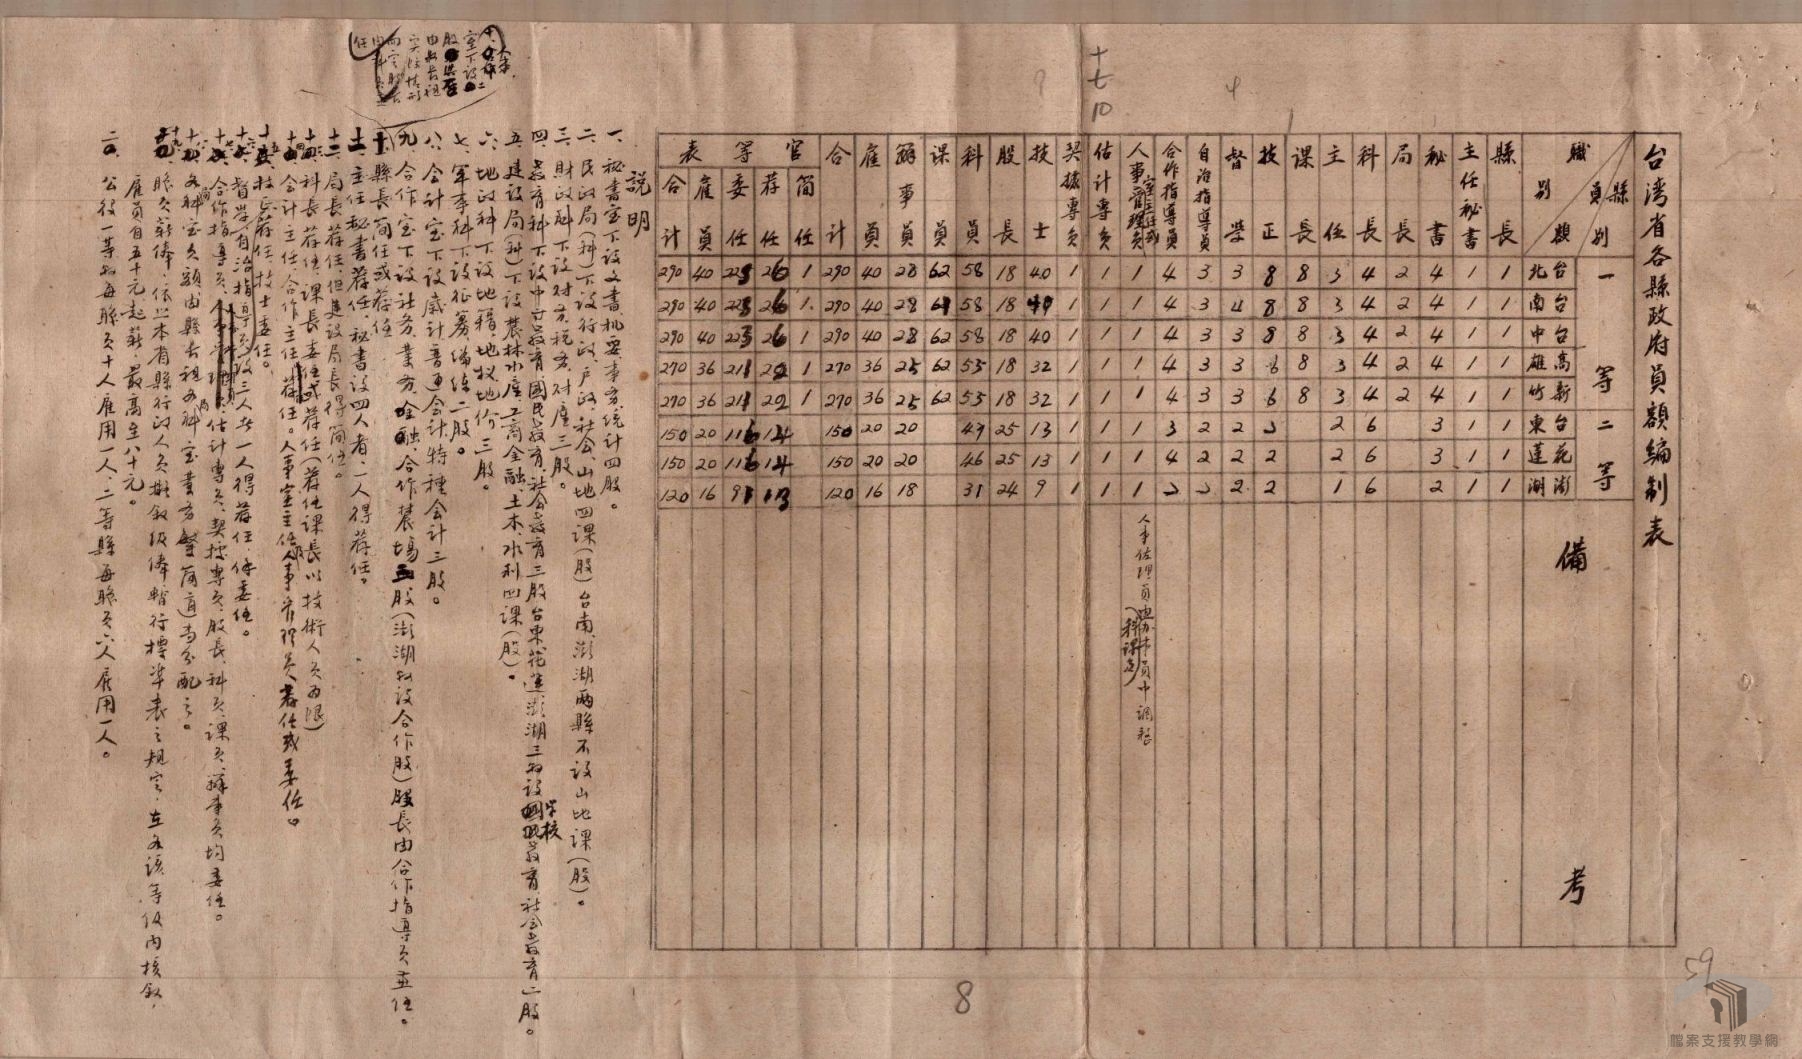 台灣省各縣政府員額編制表
縣別 員額 職別
一等 二等
台北 台南 台中 高雄 新竹 台東 花蓮 澎湖
備考
縣長 1 1 1 1 1 1 1 1
主任秘書 1 1 1 1 1 1 1 1
秘書 4 4 4 4 4 3 3 2
局長 2 2 2 2 2
科長 4 4 4 4 4 6 6 6
主任 3 3 3 3 3 2 2 1
課長 8 8 8 8 8
技正 8 8 8 6 6 2 2 2
督學 3 4 3 3 3 2 2 2
自治指導員 3 3 3 3 3 2 2 2
合作指導員 4 4 4 4 4 3 4 2
人事管理員 室主任或 1 1 1 1 1 1 1 1
人事佐理員與辦事員中調整
估計專員 1 1 1 1 1 1 1 1
契據專員 1 1 1 1 1 1 1 1
技士 40 40 32 32 13 13 9
股長 18 18 18 18 18 25 25 24
科員 58 58 58 55 55 49 46 31
課員 62 61 62 62 62
辦事員 28 28 28 25 25 20 20 18
雇員 40 40 40 36 36 20 20 16
合計 290 290 290 270 270 150 150 120
官等表
簡任 1 1 1 1 1
荐任 26 26 26 22 22 14 14 13
委任 223 223 223 211 211 116 116 91
雇員 40 40 40 36 36 20 20 16
合計 290 290 290 270 270 150 150 120
說明
一、秘書室下設文書、機要、事務、統計四股。
二、民政局(科)下設行政、戶政、社會、山地四課(股)台南澎湖兩縣不設山地課(股)。
三、財政科下設財務、稅務、財產三股。
四、教育科下設中等教育、國民教育、社會教育三股台東花蓮澎湖三縣設學校教育、社會教育二股。
五、建設局(科)下設農林、水產、工商金融、土木、水利四課(股)。
六、地政科下設地籍、地權、地價三股。
七、軍事科下設征募、編練二股。
八、會計室下設歲計、普通會計、特種會計三股。
九、合作室下設社務、業務、金融、合作農場股(澎湖縣設合作股)股長由合作指導員兼任。
人事室下設二股
十、縣長簡任或荐任
主任秘書荐任、秘書設四人者,二人得荐任。
局長荐任,但建設局長得簡任。
科長荐任、課長委任或荐任(荐任課長以技術人員為限)
會計主任、合作主任荐任。人事室主任人事管理員荐任或委任。
技正荐任、技士委任。
督學、自治指導員設三人者一人得荐任、餘委任。
合作指導員、估計專員、契據專員、股長、科員、課員、辦事員均委任。
各科室員額由縣長視各科室業務繁簡適當分配之。
職員薪俸、依照本省縣行政人員敘級俸暫行標準表之規定,在各該等級內核敘,
雇員自五十元起薪,最高至八十元。
二、公役一等縣每職員十人雇用一人、二等縣每職員六人雇用一人。
十
七
10
8
59
檔案支援教學網